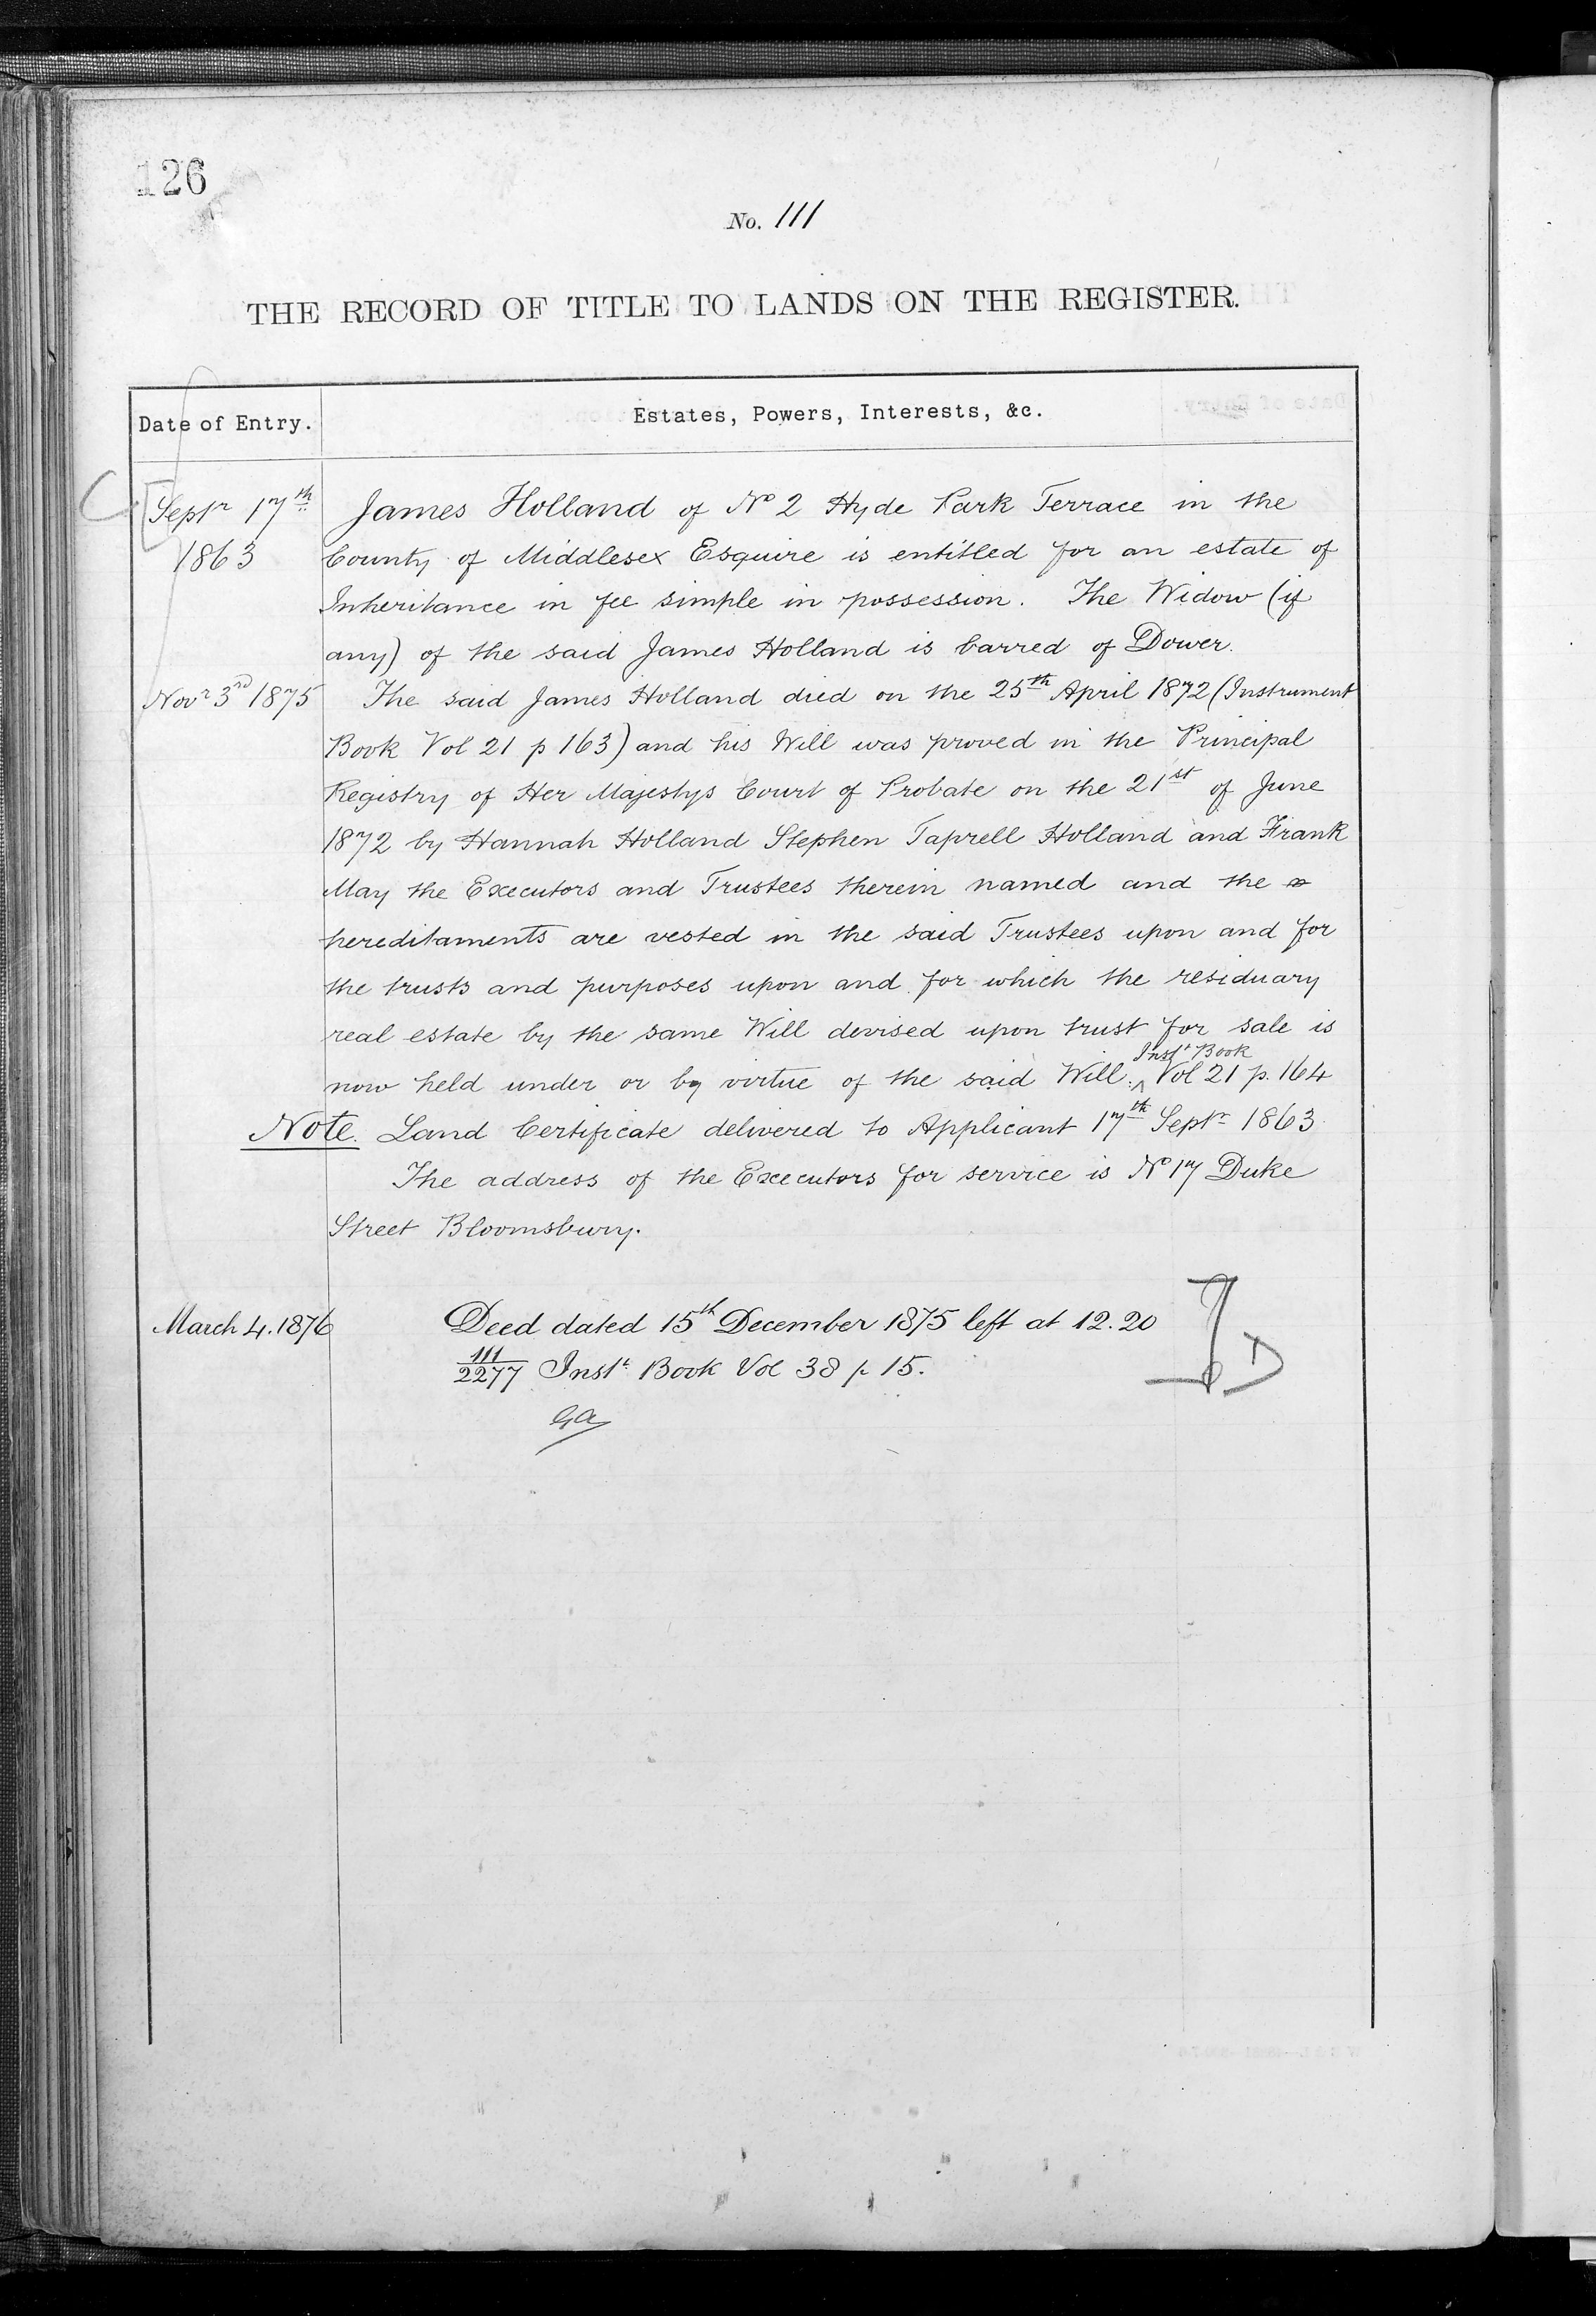 126
No. 111
THE RECORD OF TITLE TO LANDS ON THE REGISTER.
Date of Entry.
Estates, Powers, Interests, &c.
Septr 17th James Holland of No 2 Hyde Park Terrace in the
1863 County of Middlesex Esquire is entitled for an estate of
Inheritance in fee simple in possession. The Widow (if
any) of the said James Holland is barred of Dower.
Novr 3rd 1875 The said James Holland died on the 25th April 1872 (Instrument
Book Vol 21 p 163) and his Will was proved in the Principal
Registry of Her Majestys Court of Probate on the 21st of June
1872 by Hannah Holland Stephen Taprell Holland and Frank
May the Executors and Trustees therein named and the
hereditaments are vested in the said Trustees upon and for
the trusts and purposes upon and for which the residuary
real estate by the same Will devised upon trust for sale is
now held under or by virtue of the said Will. Inst Book Vol 21 p. 164
Note. Land Certificate delivered to Applicant 17th Septr 1863
The address of the Executors for service is No 17 Duke
Street Bloomsbury.
March 4. 1876 Deed dated 15th December 1875 left at 12.20
111/2277 Inst Book Vol 38 p 15.
GA